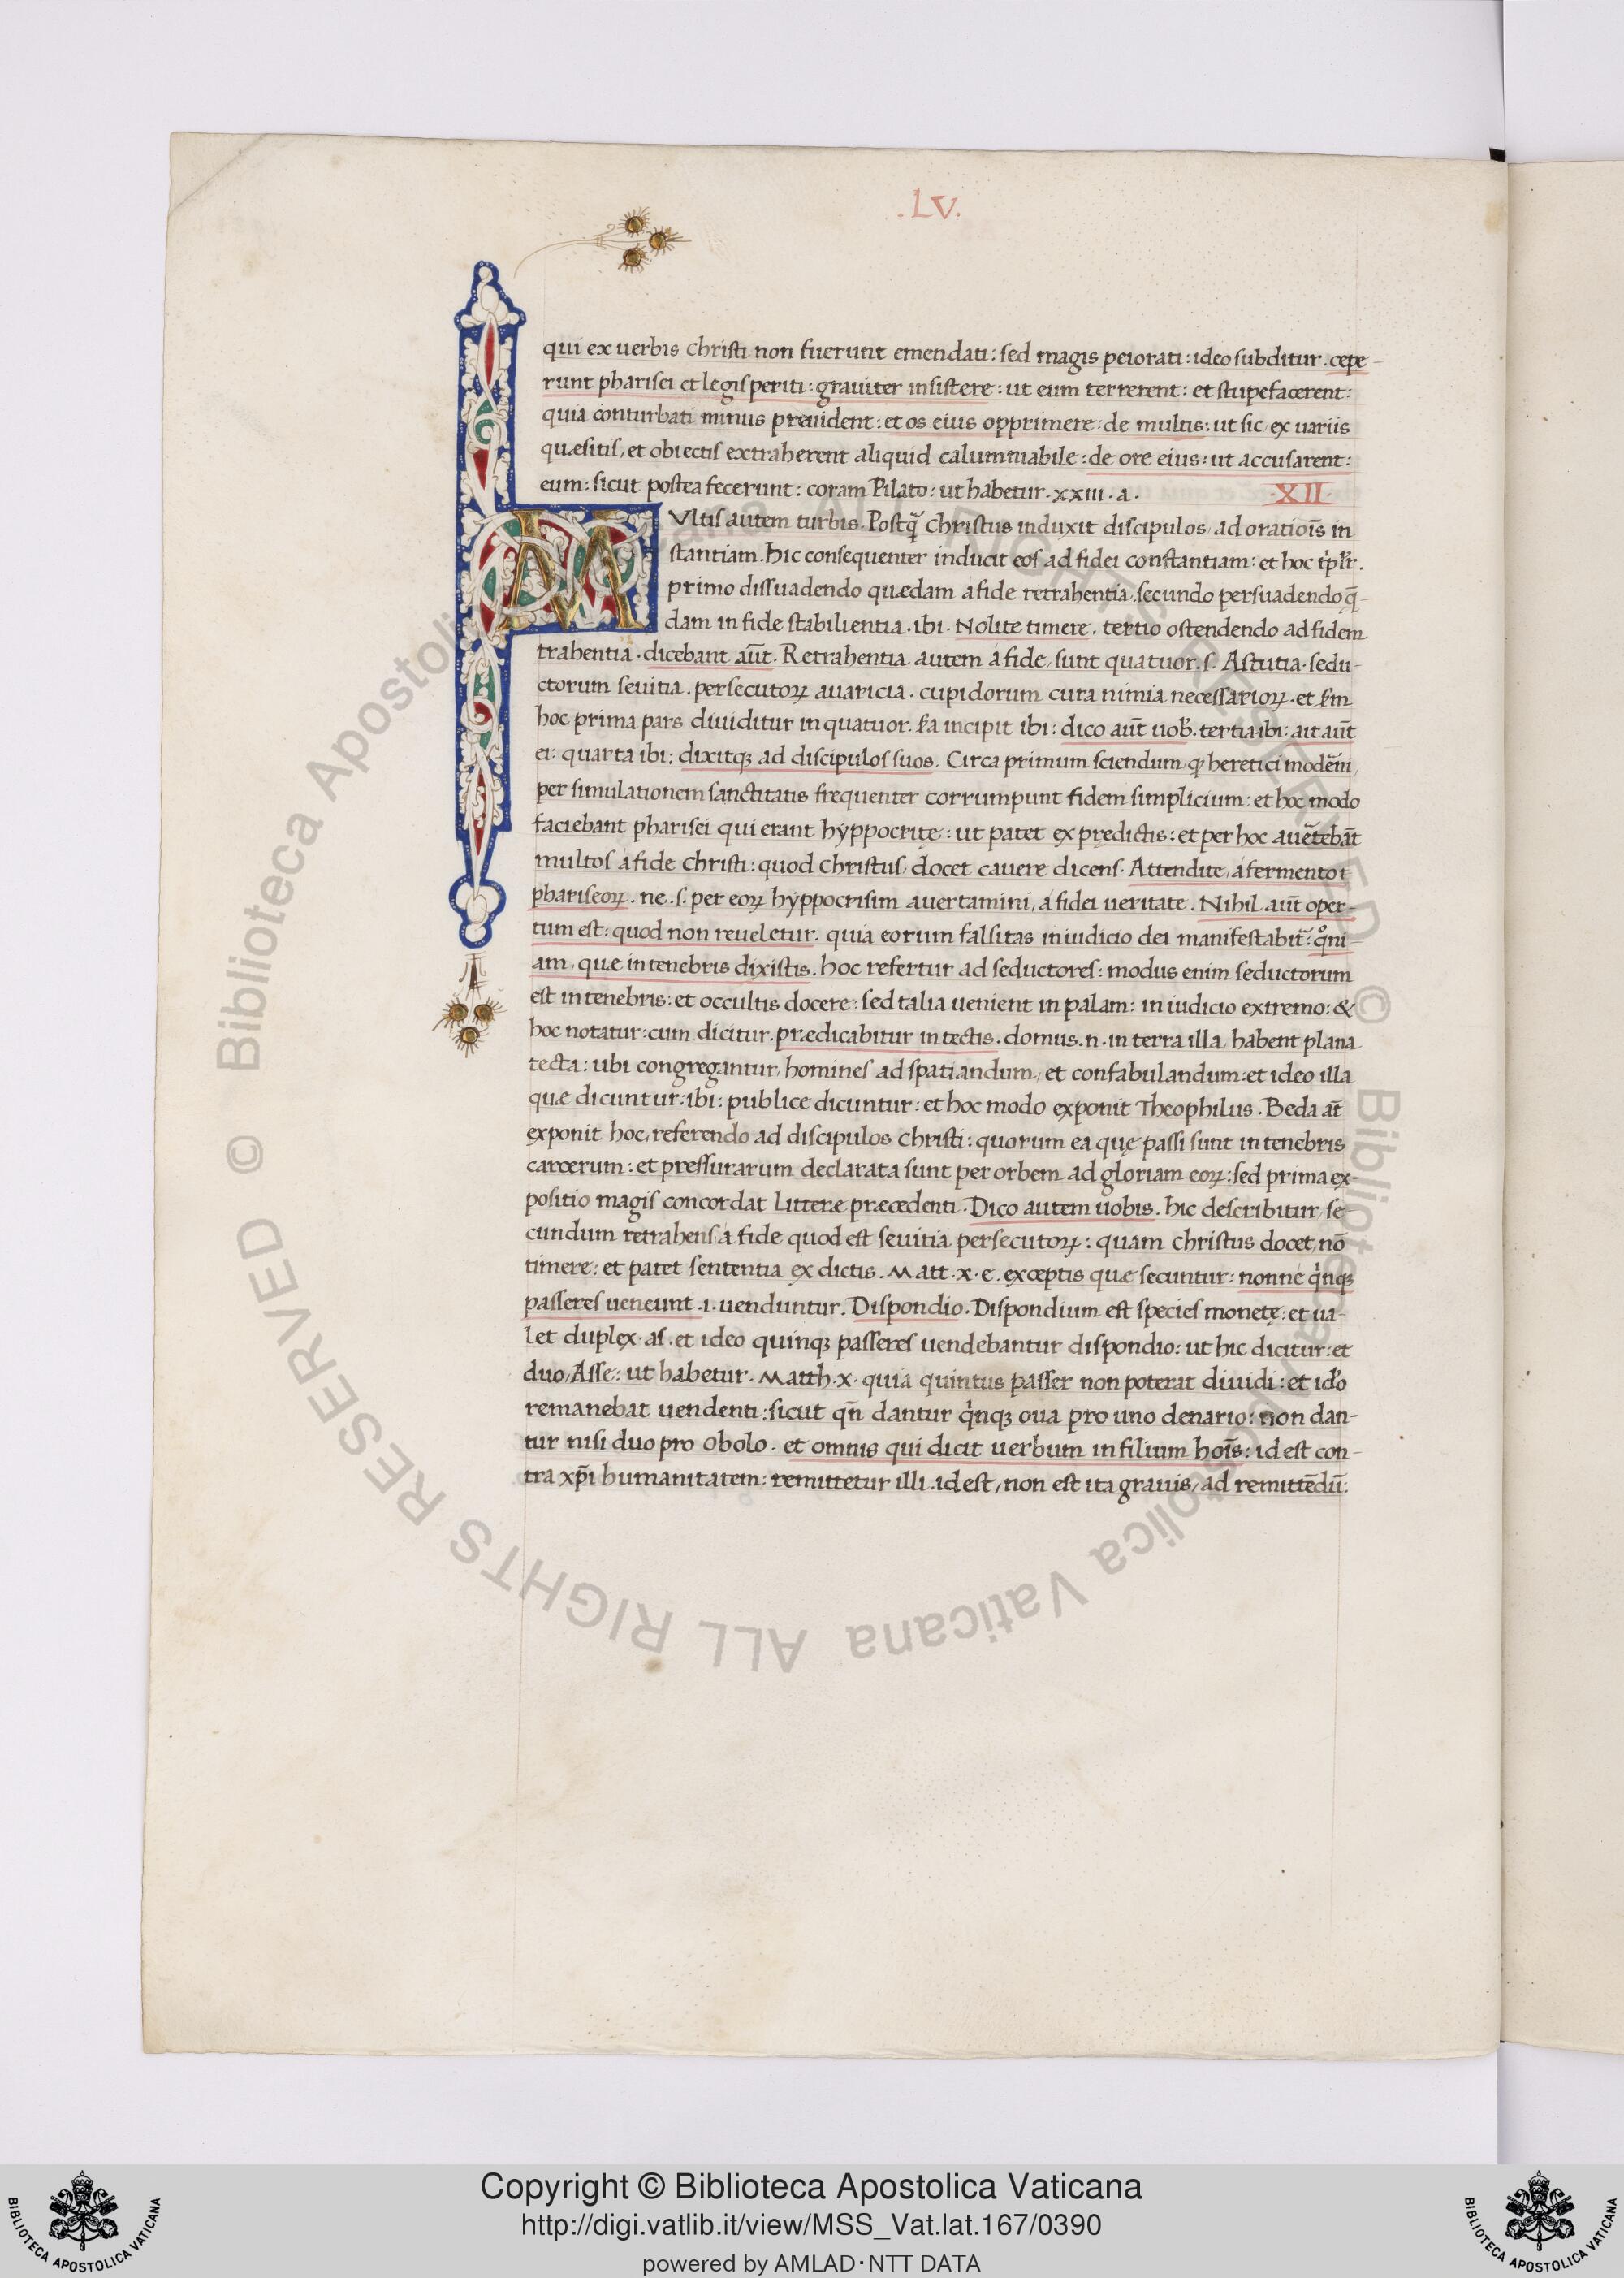 .LV.
qui ex uerbis christi non fuerunt emendati: sed magis peiorati: ideo subditur. cepe-
runt pharisei et legisperiti: grauiter insistere: ut eum terrerent: et stupefacerent:
quia conturbati minus preuident: et os eius opprimere: de multis: ut sic, ex uariis
quæsitis, et obiectis extraherent aliquid calumniabile: de ore eius: ut accusarent:
eum: sicut postea fecerunt: coram Pilato: ut habetur. xxiii. a. .XII.
MVltis autem turbis. Postq̃ christus induxit discipulos, ad oratiois̄ in
stantiam. hic consequenter inducit eos ad fidei constantiam: et hoc
primo dissuadendo quædam a fide retrahentia, secundo persuadendo q̄-
dam in fide stabilientia. ibi. Nolite timere. tertio ostendendo ad fidem
trahentia. dicebant aūt. Retrahentia autem a fide, sunt quatuor. s. Astutia. sedu-
ctorum seuitia. persecutoꝝ auaricia. cupidorum cura nimia necessarioꝝ. et
hoc prima pars diuiditur in quatuor. incipit ibi: dico aūt uob. tertia ibi: ait aūt
ei: quarta ibi: dixitqꝫ ad discipulos suos. Circa primum sciendum, ꝙ heretici moderni,
per simulationem sanctitatis frequenter corrumpunt fidem simplicium: et hoc modo
faciebant pharisei qui erant hyppocritę: ut patet ex predictis: et per hoc auertebāt
multos a fide christi: quod christus, docet cauere dicens. Attendite, a fermento
phariseoꝝ. ne. s. per eoꝝ hyppocrisim auertamini, a fidei ueritate. Nihil aūt oper-
tum est: quod non reueletur. quia eorum falsitas in iudicio dei manifestabit̃: qͦni-
am, quæ in tenebris dixistis. hoc refertur ad seductores: modus enim seductorum
est in tenebris: et occultis docere: sed talia uenient in palam: in iudicio extremo: &
hoc notatur: cum dicitur. prædicabitur in tectis. domus. n. in terra illa, habent plana
tecta: ubi congregantur, homines ad spatiandum, et confabulandum: et ideo illa
quæ dicuntur: ibi: publice dicuntur: et hoc modo exponit Theophilus. Beda at̄
exponit hoc, referendo ad discipulos christi: quorum ea quę passi sunt in tenebris
carcerum: et pressurarum declarata sunt per orbem ad gloriam eoꝝ: sed prima ex-
positio magis concordat litteræ præcedenti. Dico autem uobis. hic describitur, se-
cundum retrahens, a fide quod est seuitia persecutoꝝ: quam christus docet, nō
timere: et patet sententia ex dictis. Matt. x. e. exceptis quæ secuntur: nonne qͥnqꝫ
passeres ueneunt .i. uenduntur. Dispondio. Dispondium est species monetę: et ua-
let duplex. as. et ideo quinqꝫ passeres uendebantur dispondio: ut hic dicitur: et
duo, Asse: ut habetur. Matth. x. quia quintus passer non poterat diuidi: et
remanebat uendenti: sicut qn̄ dantur qͥnqꝫ oua pro uno denario: non dan-
tur nisi duo pro obolo. et omnis qui dicit uerbum in filium hois̄: id est con-
tra xp̄i humanitatem: remittetur illi. id est, non est ita grauis, ad remittēdū:
© Biblioteca Apostolica Vaticana ALL RIGHTS RESERVED © Biblioteca Apostolica Vaticana ALL RIGHTS RESERVED
Copyright © Biblioteca Apostolica Vaticana
http://digi.vatlib.it/view/MSS_Vat.lat.167/0390
powered by AMLAD·NTT DATA
BIBLIOTECA APOSTOLICA VATICANA
BIBLIOTECA APOSTOLICA VATICANA